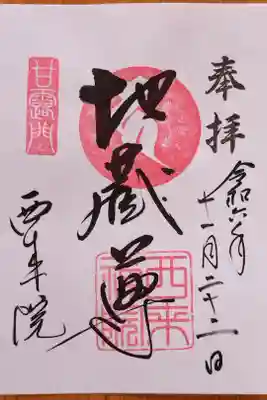 奉拝
令和六年
十一月二十二日
地蔵尊
西来院
甘露門
西来